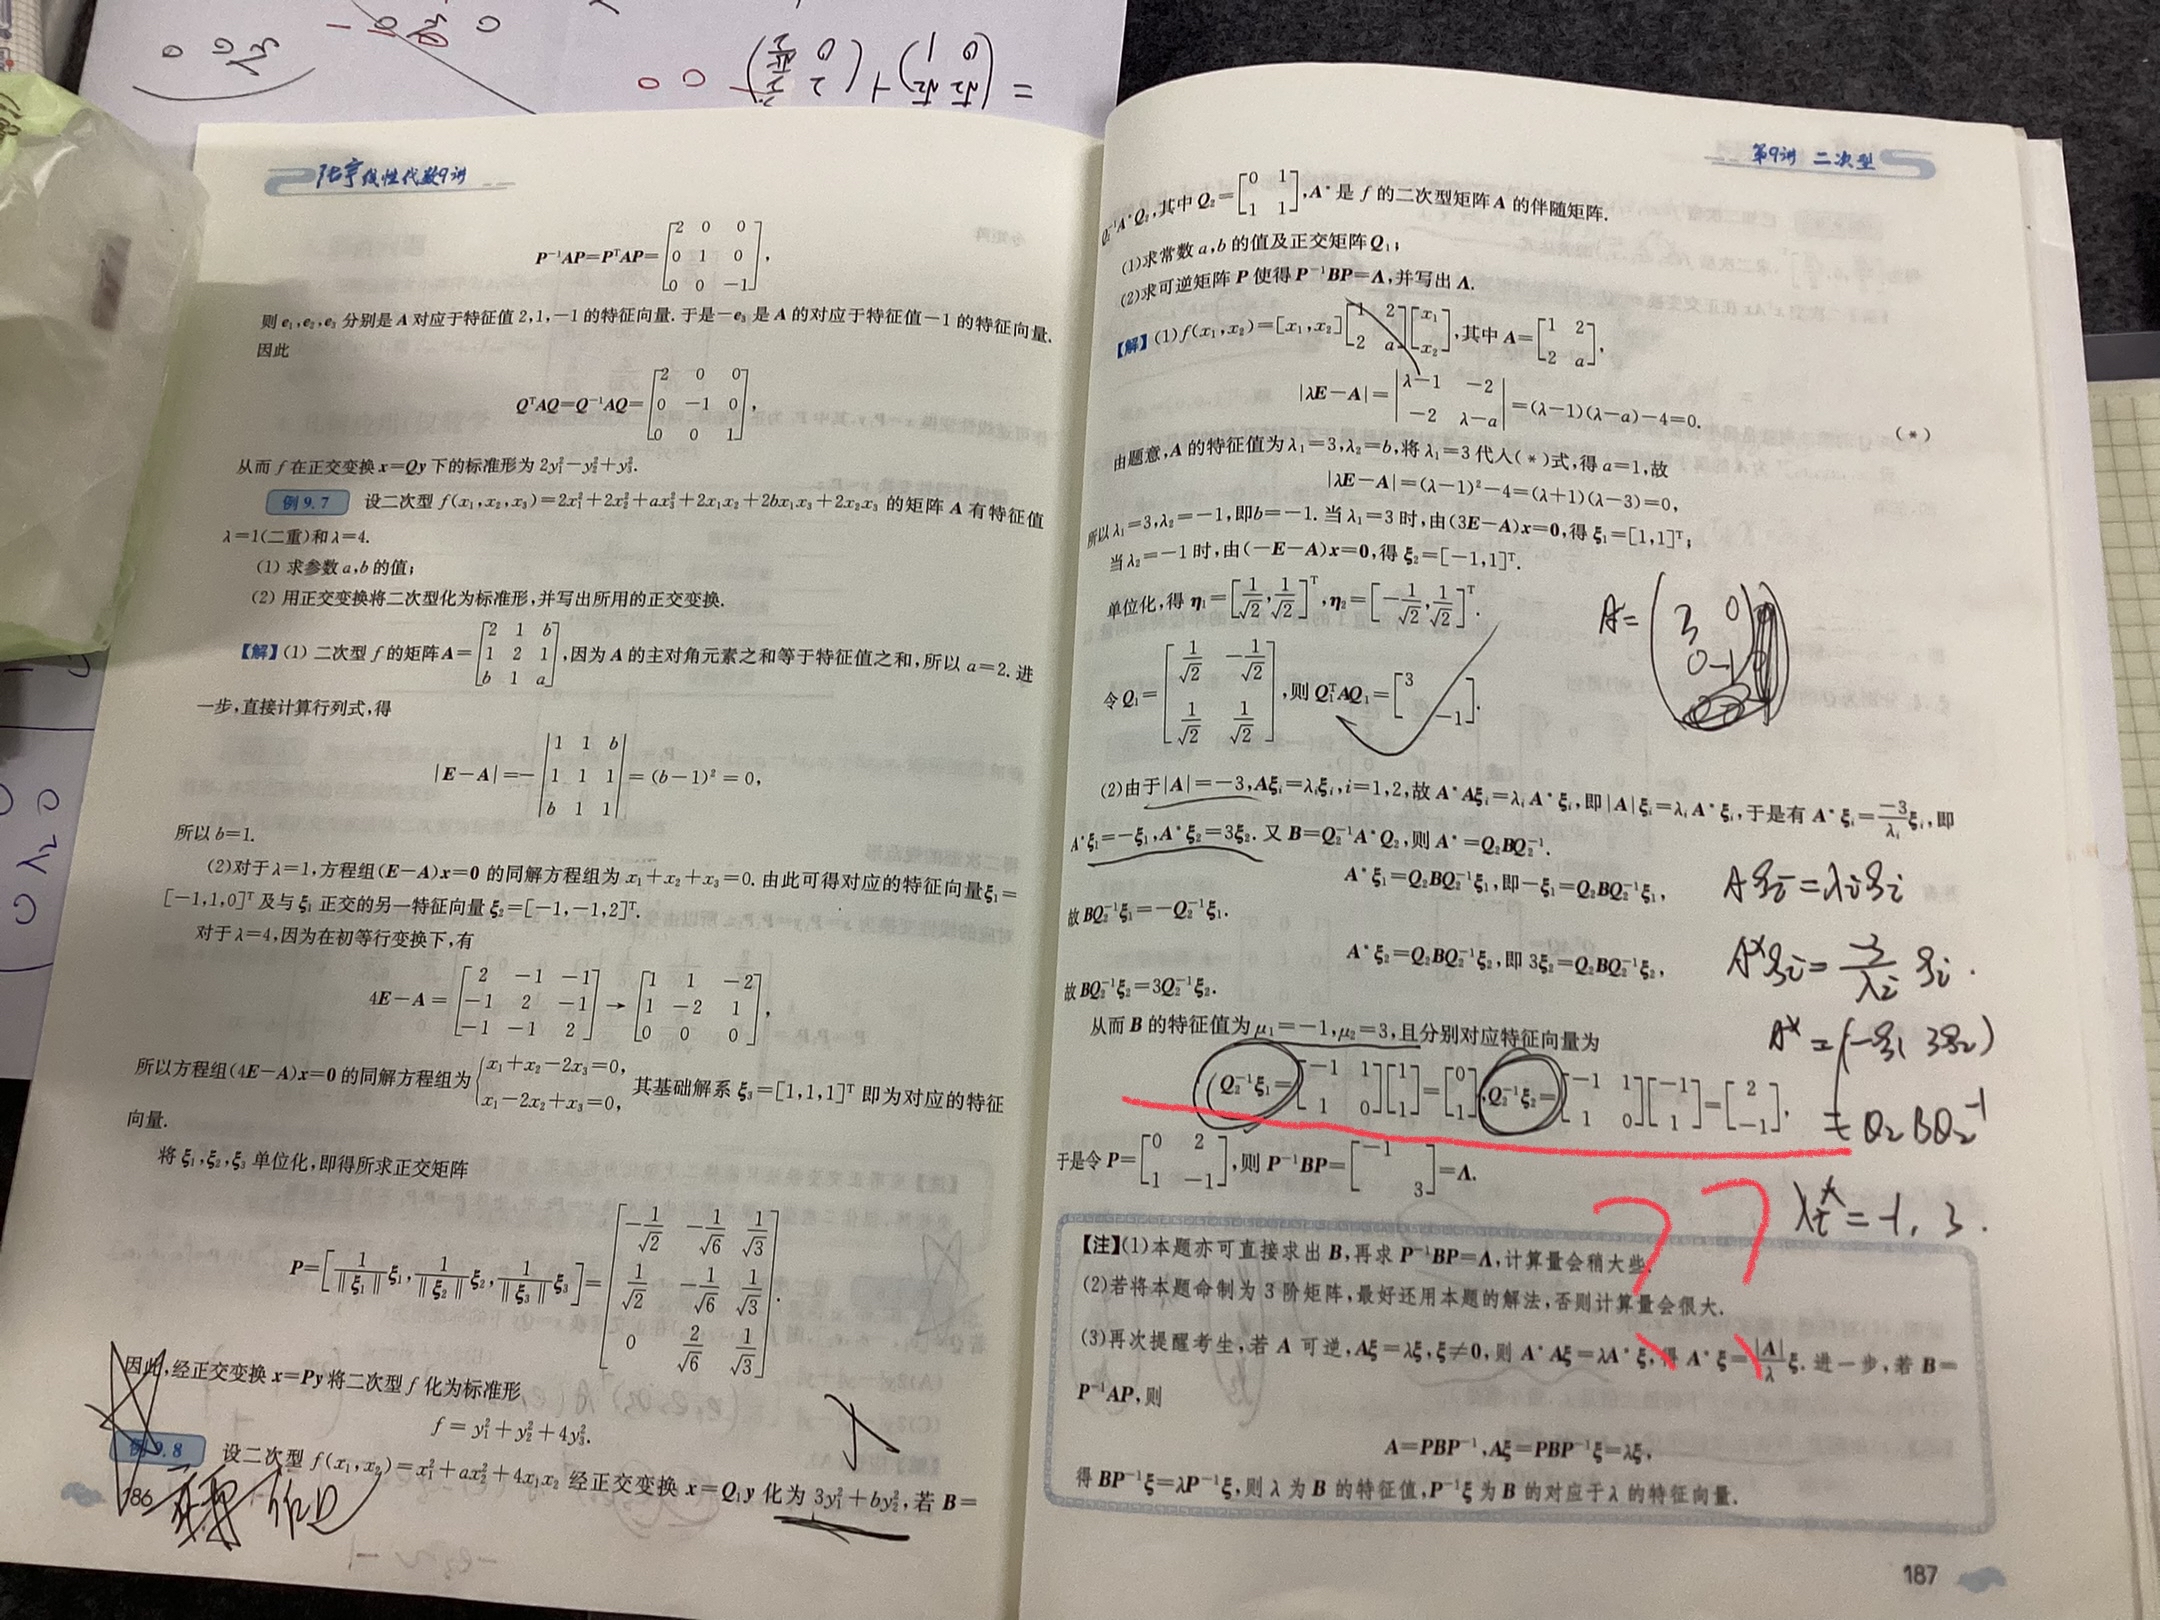 张宇线性代数9讲
P⁻¹AP=PᵀAP=[2 0 0; 0 1 0; 0 0 -1],
则 e₁,e₂,e₃ 分别是 A 对应于特征值 2,1,-1 的特征向量. 于是-e₃ 是 A 的对应于特征值-1 的特征向量.
因此
QᵀAQ=Q⁻¹AQ=[2 0 0; 0 -1 0; 0 0 1],
从而 f 在正交变换 x=Qy 下的标准形为 2y₁²-y₂²+y₃².
例 9.7 设二次型 f(x₁,x₂,x₃)=2x₁²+2x₂²+ax₃²+2x₁x₂+2bx₁x₃+2x₂x₃ 的矩阵 A 有特征值
λ=1(二重)和 λ=4.
(1) 求参数 a,b 的值;
(2) 用正交变换将二次型化为标准形,并写出所用的正交变换.
【解】(1) 二次型 f 的矩阵 A=[2 1 b; 1 2 1; b 1 a],因为 A 的主对角元素之和等于特征值之和,所以 a=2. 进
一步,直接计算行列式,得
|E-A|=-|1 1 b; 1 1 1; b 1 1|=(b-1)²=0,
所以 b=1.
(2)对于 λ=1,方程组(E-A)x=0 的同解方程组为 x₁+x₂+x₃=0. 由此可得对应的特征向量ξ₁=
[-1,1,0]ᵀ 及与 ξ₁ 正交的另一特征向量 ξ₂=[-1,-1,2]ᵀ.
对于 λ=4,因为在初等行变换下,有
4E-A=[2 -1 -1; -1 2 -1; -1 -1 2]→[1 1 -2; 1 -2 1; 0 0 0],
所以方程组(4E-A)x=0 的同解方程组为{x₁+x₂-2x₃=0, x₁-2x₂+x₃=0, 其基础解系 ξ₃=[1,1,1]ᵀ 即为对应的特征
向量.
将 ξ₁,ξ₂,ξ₃ 单位化,即得所求正交矩阵
P=[1/‖ξ₁‖ ξ₁, 1/‖ξ₂‖ ξ₂, 1/‖ξ₃‖ ξ₃]=[-1/√2 -1/√6 1/√3; 1/√2 -1/√6 1/√3; 0 2/√6 1/√3].
因此,经正交变换 x=Py 将二次型 f 化为标准形
f=y₁²+y₂²+4y₃².
例 9.8 设二次型 f(x₁,x₂)=x₁²+ax₂²+4x₁x₂ 经正交变换 x=Q₁y 化为 3y₁²+by₂²,若 B=
186
第9讲 二次型
Q₂⁻¹A*Q₂,其中 Q₂=[0 1; 1 1],A* 是 f 的二次型矩阵 A 的伴随矩阵.
(1)求常数 a,b 的值及正交矩阵 Q₁;
(2)求可逆矩阵 P 使得 P⁻¹BP=Λ,并写出 Λ.
【解】(1) f(x₁,x₂)=[x₁,x₂][1 2; 2 a][x₁; x₂],其中 A=[1 2; 2 a],
|λE-A|=|λ-1 -2; -2 λ-a|=(λ-1)(λ-a)-4=0. (*)
由题意,A 的特征值为 λ₁=3,λ₂=b,将 λ₁=3 代入(*)式,得 a=1,故
|λE-A|=(λ-1)²-4=(λ+1)(λ-3)=0,
所以 λ₁=3,λ₂=-1,即b=-1. 当 λ₁=3 时,由(3E-A)x=0,得 ξ₁=[1,1]ᵀ;
当 λ₂=-1 时,由(-E-A)x=0,得 ξ₂=[-1,1]ᵀ.
单位化,得 η₁=[1/√2,1/√2]ᵀ,η₂=[-1/√2,1/√2]ᵀ.
令 Q₁=[1/√2 -1/√2; 1/√2 1/√2],则 Q₁ᵀAQ₁=[3 ; -1].
(2)由于|A|=-3,Aξᵢ=λᵢξᵢ,i=1,2,故 A*Aξᵢ=λᵢA*ξᵢ,即|A|ξᵢ=λᵢA*ξᵢ,于是有 A*ξᵢ=-3/λᵢ ξᵢ,即
A*ξ₁=-ξ₁,A*ξ₂=3ξ₂. 又 B=Q₂⁻¹A*Q₂,则 A*=Q₂BQ₂⁻¹.
A*ξ₁=Q₂BQ₂⁻¹ξ₁,即-ξ₁=Q₂BQ₂⁻¹ξ₁,
故 BQ₂⁻¹ξ₁=-Q₂⁻¹ξ₁.
A*ξ₂=Q₂BQ₂⁻¹ξ₂,即 3ξ₂=Q₂BQ₂⁻¹ξ₂,
故 BQ₂⁻¹ξ₂=3Q₂⁻¹ξ₂.
从而 B 的特征值为 μ₁=-1,μ₂=3,且分别对应特征向量为
Q₂⁻¹ξ₁=[-1 1; 1 0][1; 1]=[0; 1],Q₂⁻¹ξ₂=[-1 1; 1 0][-1; 1]=[2; -1].
于是令 P=[0 2; 1 -1],则 P⁻¹BP=[-1 ; 3]=Λ.
【注】(1)本题亦可直接求出 B,再求 P⁻¹BP=Λ,计算量会稍大些.
(2)若将本题命制为 3 阶矩阵,最好还用本题的解法,否则计算量会很大.
(3)再次提醒考生,若 A 可逆,Aξ=λξ,ξ≠0,则 A*Aξ=λA*ξ,得 A*ξ=|A|/λ ξ. 进一步,若 B=
P⁻¹AP,则
A=PBP⁻¹,Aξ=PBP⁻¹ξ=λξ,
得 BP⁻¹ξ=λP⁻¹ξ,则 λ 为 B 的特征值,P⁻¹ξ 为 B 的对应于 λ 的特征向量.
187
A=(3 0; 0 -1)
Aξi=λiξi
A*ξi=-3/λi ξi.
A*=(-ξ1 3ξ2)
=Q₂BQ₂⁻¹
λi*=-1, 3.
??